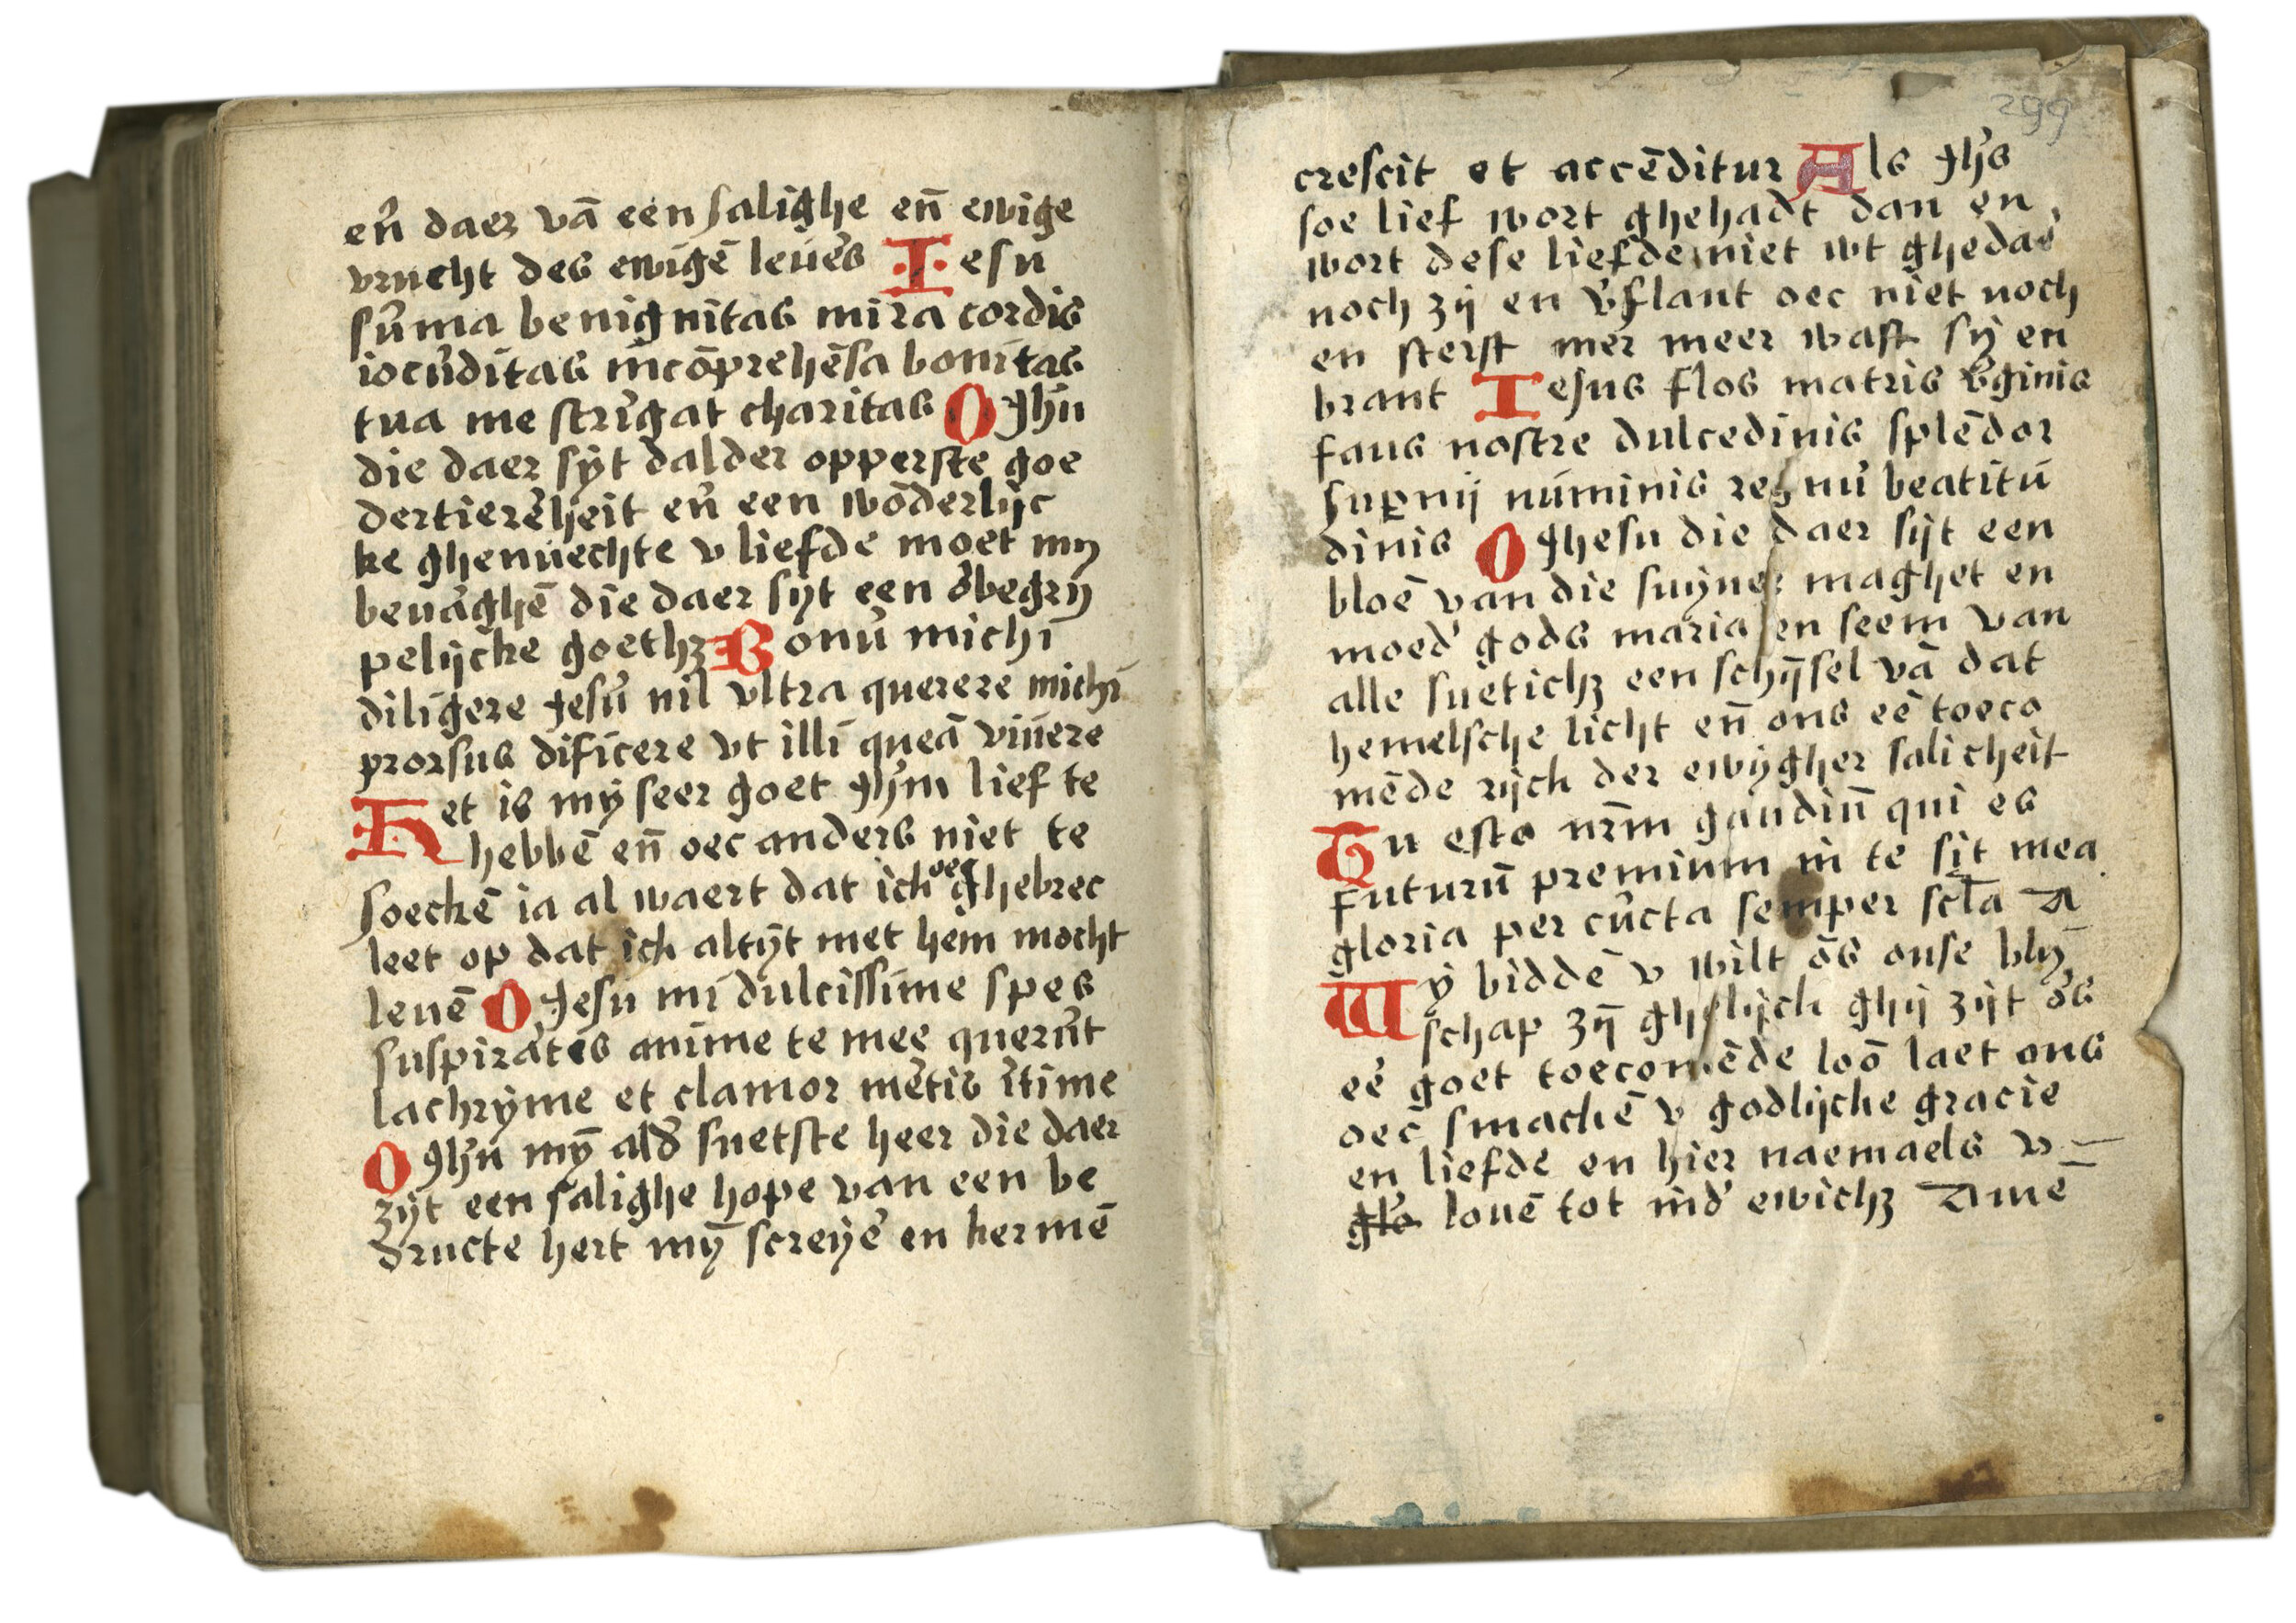 en̄ daer vā een salighe en̄ ewige
vrucht des ewigē leuēs Iesu
sūma benignitas mira cordis
iocūditas incōprehēsa bonitas
tua me strīgat charitas O Jhū
die daer sijt dalder opperste goe
dertierēheit en̄ een wōderlijc
ke ghenuechte v liefde moet my
beuāghē die daer sijt een ōbegrij
pelijcke goethꝫ Bonū michi
diligere Jesū nil vltra querere michi
prorsus dificere vt illi queā viuere
Het is mij seer goet Jhm lief te
hebbē en̄ oec anders niet te
soeckē ia al waert dat ich oec ghebrec
leet op dat ich altijt met hem mocht
leuē O Jesu mi dulcissime spes
suspirātis anime te mee querūt
lachrijme et clamor mētis ītime
O Jhū mȳ ald' suetste heer die daer
zijt een salighe hope van een be
dructe hert mȳ screijē en kermē
299
crescit et accēditur Als Jhs
soe lief wort ghehadt dan en
wort dese liefde niet wt ghedaē
noch zij en v'flant oec niet noch
en sterft mer meer wast sij en
brant Iesus flos matris v'ginis
faus nostre dulcedinis splēdor
suꝑnij numinis regnū beatitu
dinis O Jhesu die daer sijt een
bloē van die suijuer maghet en
moed' gods maria en seem van
alle suetichꝫ een schijsel vā dat
hemelsche licht en̄ ons eē toeco
mēde rijch der ewijgher salicheit
Tu esto nr̄m gaudiū qui es
futurū premium in te sit mea
gloria per cūcta semper scl̄a A
Wij biddē v wilt ōs onse blij
schap zȳ ghelijch ghij zijt ōs
eē goet toecomēde loō laet ons
oec smackē v godlijcke gracie
en liefde en hier naemaels v
glo louē tot ind' ewichꝫ Amē